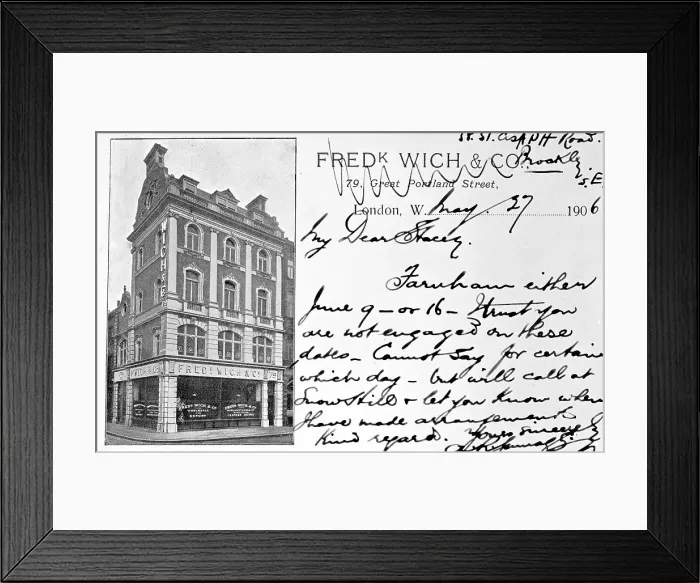 58 St. Asaph Road.
Brockley
S.E.
FREDK WICH & CO.
79, Great Portland Street,
London, W. May 27 1906
My Dear Stacey.
Farnham either
June 9 - or 16 - I trust you
are not engaged on these
dates - Cannot say for certain
which day - but will call at
Snow Hill & let you know when
I have made arrangements
Kind regards. Yours sincerely
WICH & CO
WICH & CO.
FREDK. WICH & CO.
79
FREDK WICH & CO